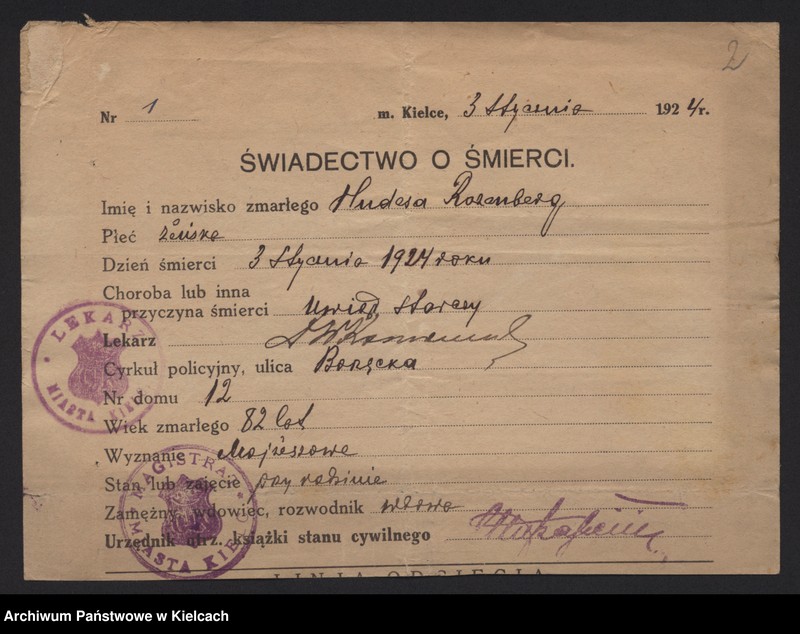 2
Nr 1 m. Kielce, 3 Stycznia 1924 r.
ŚWIADECTWO O ŚMIERCI.
Imię i nazwisko zmarłego Hudesa Rozenberg
Płeć żeńska
Dzień śmierci 3 Stycznia 1924 roku
Choroba lub inna
przyczyna śmierci Uwiąd starczy
Lekarz
Cyrkuł policyjny, ulica
Nr domu 12
Wiek zmarłego 82 lat
Wyznanie Mojżeszowe
Stan lub zajęcie przy rodzinie
Zamężny, wdowiec, rozwodnik wdowa
Urzędnik utrz. książki stanu cywilnego
LINJA ODCIĘCIA
LEKARZ MIASTA KIELC
MAGISTRAT MIASTA KIELC
Archiwum Państwowe w Kielcach